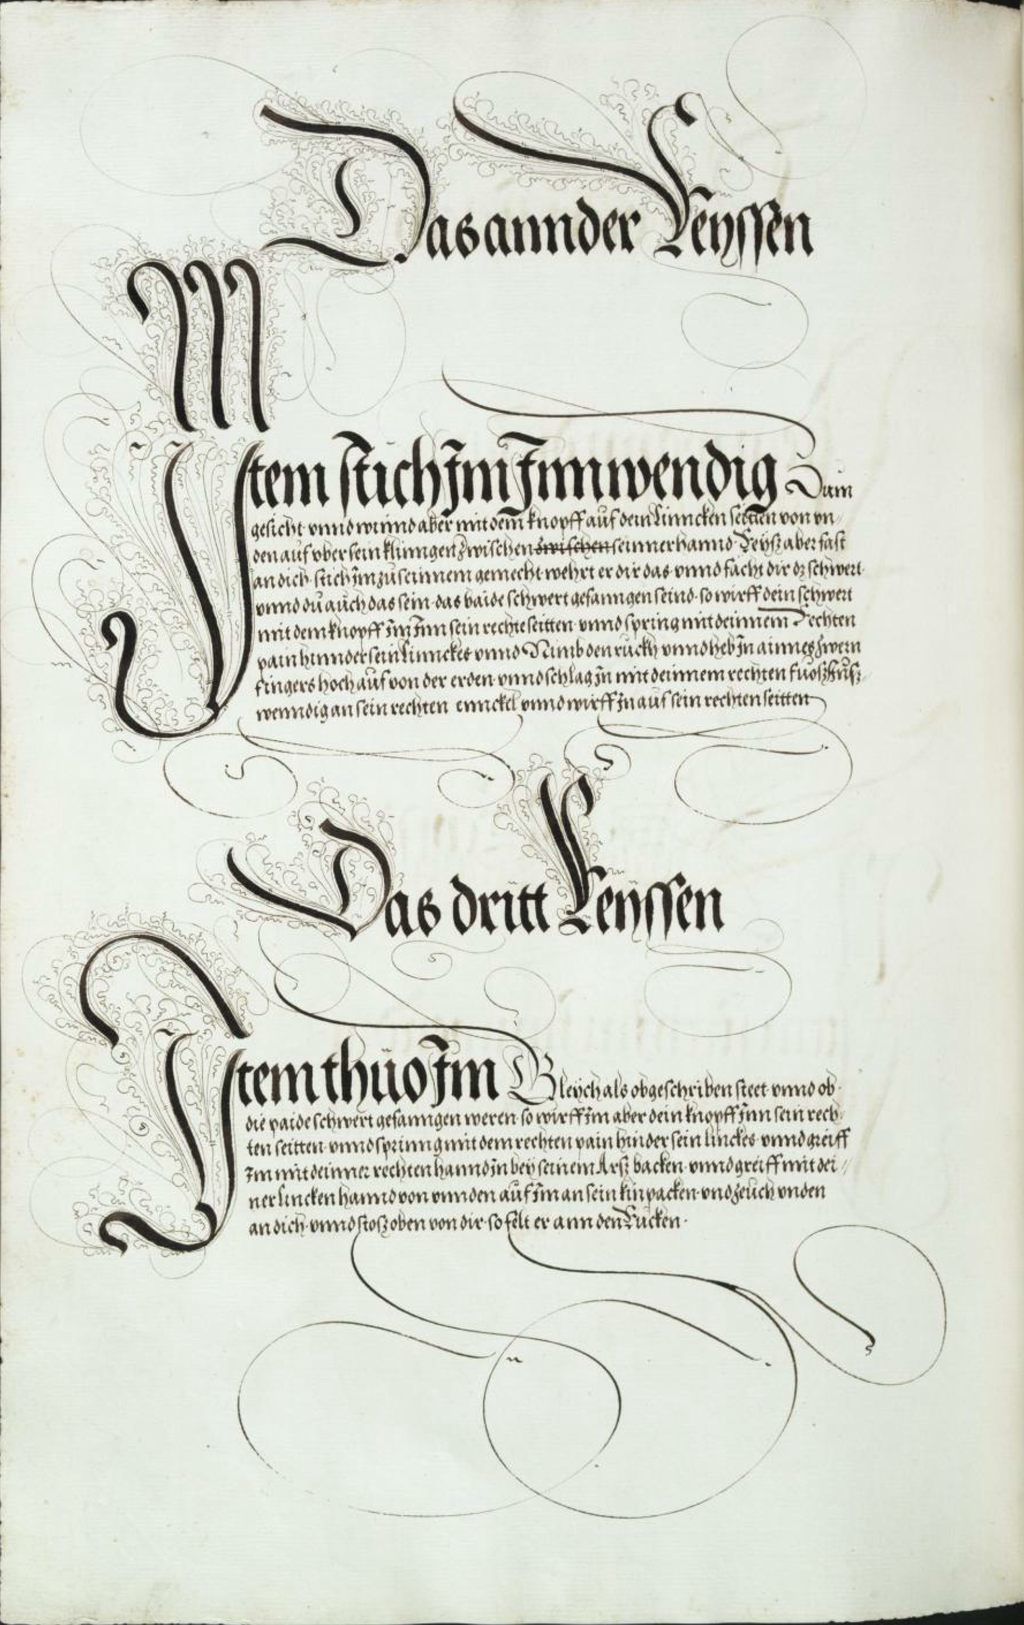 Das annder Reyssen
Item stich Im Innwendig Zum
gesicht vnnd winnd aber mit dem knopff auf dein linncken seitten von vn¬
den auf vber sein klinngen zwischen zwischen seinner hannd Reysz aber fast
an dich stich Im zu seinnem gemecht wehrt er dir das vnnd facht dir dz schwert
vnnd du auch das sein das baide schwert gefanngen seind so wirff dein schwert
mit dem knopff Im Inn sein rechte seitten vnnd spring mit deinnem Rechten
pain hinnder sein linnckes vnnd Nimb den ruckh vnnd heb In ainnes zwern
fingers hoch auf von der erden vnnd schlag In mit deinnem rechten fuosz Inusz¬
wenndig an sein rechten ennckel vnnd wirff In aus sein rechten seitten
Das dritt Reyssen
Item thüo Im Gleych als obgeschriben steet vnnd ob
die paide schwert gefanngen weren so wirff Im aber dein knopff Inn sein rech¬
ten seitten vnnd sprinng mit dem rechten pain hinder sein linckes vnnd greiff
Im mit deinner rechten hannd In bey seinem Arsz backen vnnd greiff mit dei¬
ner lincken hannd von vnnden auf Im an sein kinpacken vnd zeuch vnden
an dich vnnd stosz oben von dir so felt er ann den Rucken